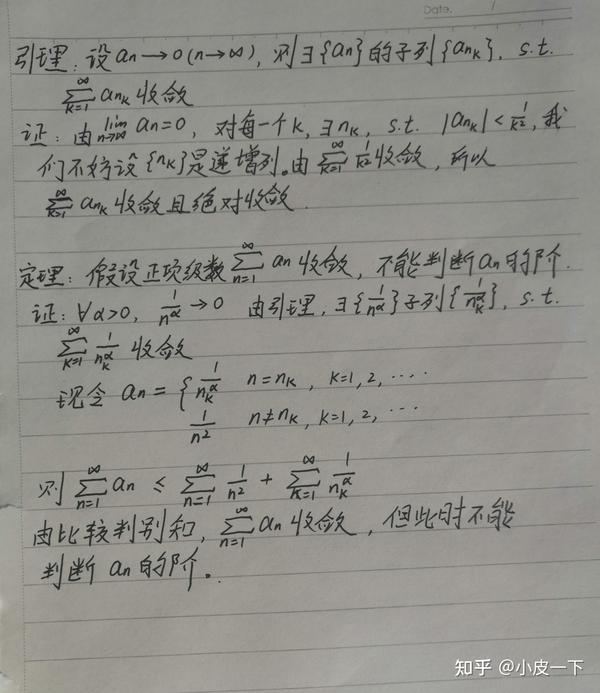 Date. /
引理：设 an→0(n→∞)，则∃{an}的子列{ank}，s.t.
∞∑k=1 ank 收敛
证：由 lim n→∞ an=0，对每一个k，∃nk，s.t. |ank|<1/k²，我
们不妨设{nk}是递增列。由 ∞∑k=1 1/k² 收敛，所以
∞∑k=1 ank 收敛且绝对收敛.
定理：假设正项级数 ∞∑n=1 an 收敛，不能判断an的阶.
证：∀α>0，1/n^α→0 由引理，∃{1/n^α}子列{1/nk^α}，s.t.
∞∑k=1 1/nk^α 收敛
现令 an = { 1/nk^α n=nk，k=1,2,····
1/n² n≠nk，k=1,2,···
则 ∞∑n=1 an ≤ ∞∑n=1 1/n² + ∞∑k=1 1/nk^α
由比较判别知，∞∑n=1 an 收敛，但此时不能
判断 an 的阶。
知乎 @小皮一下